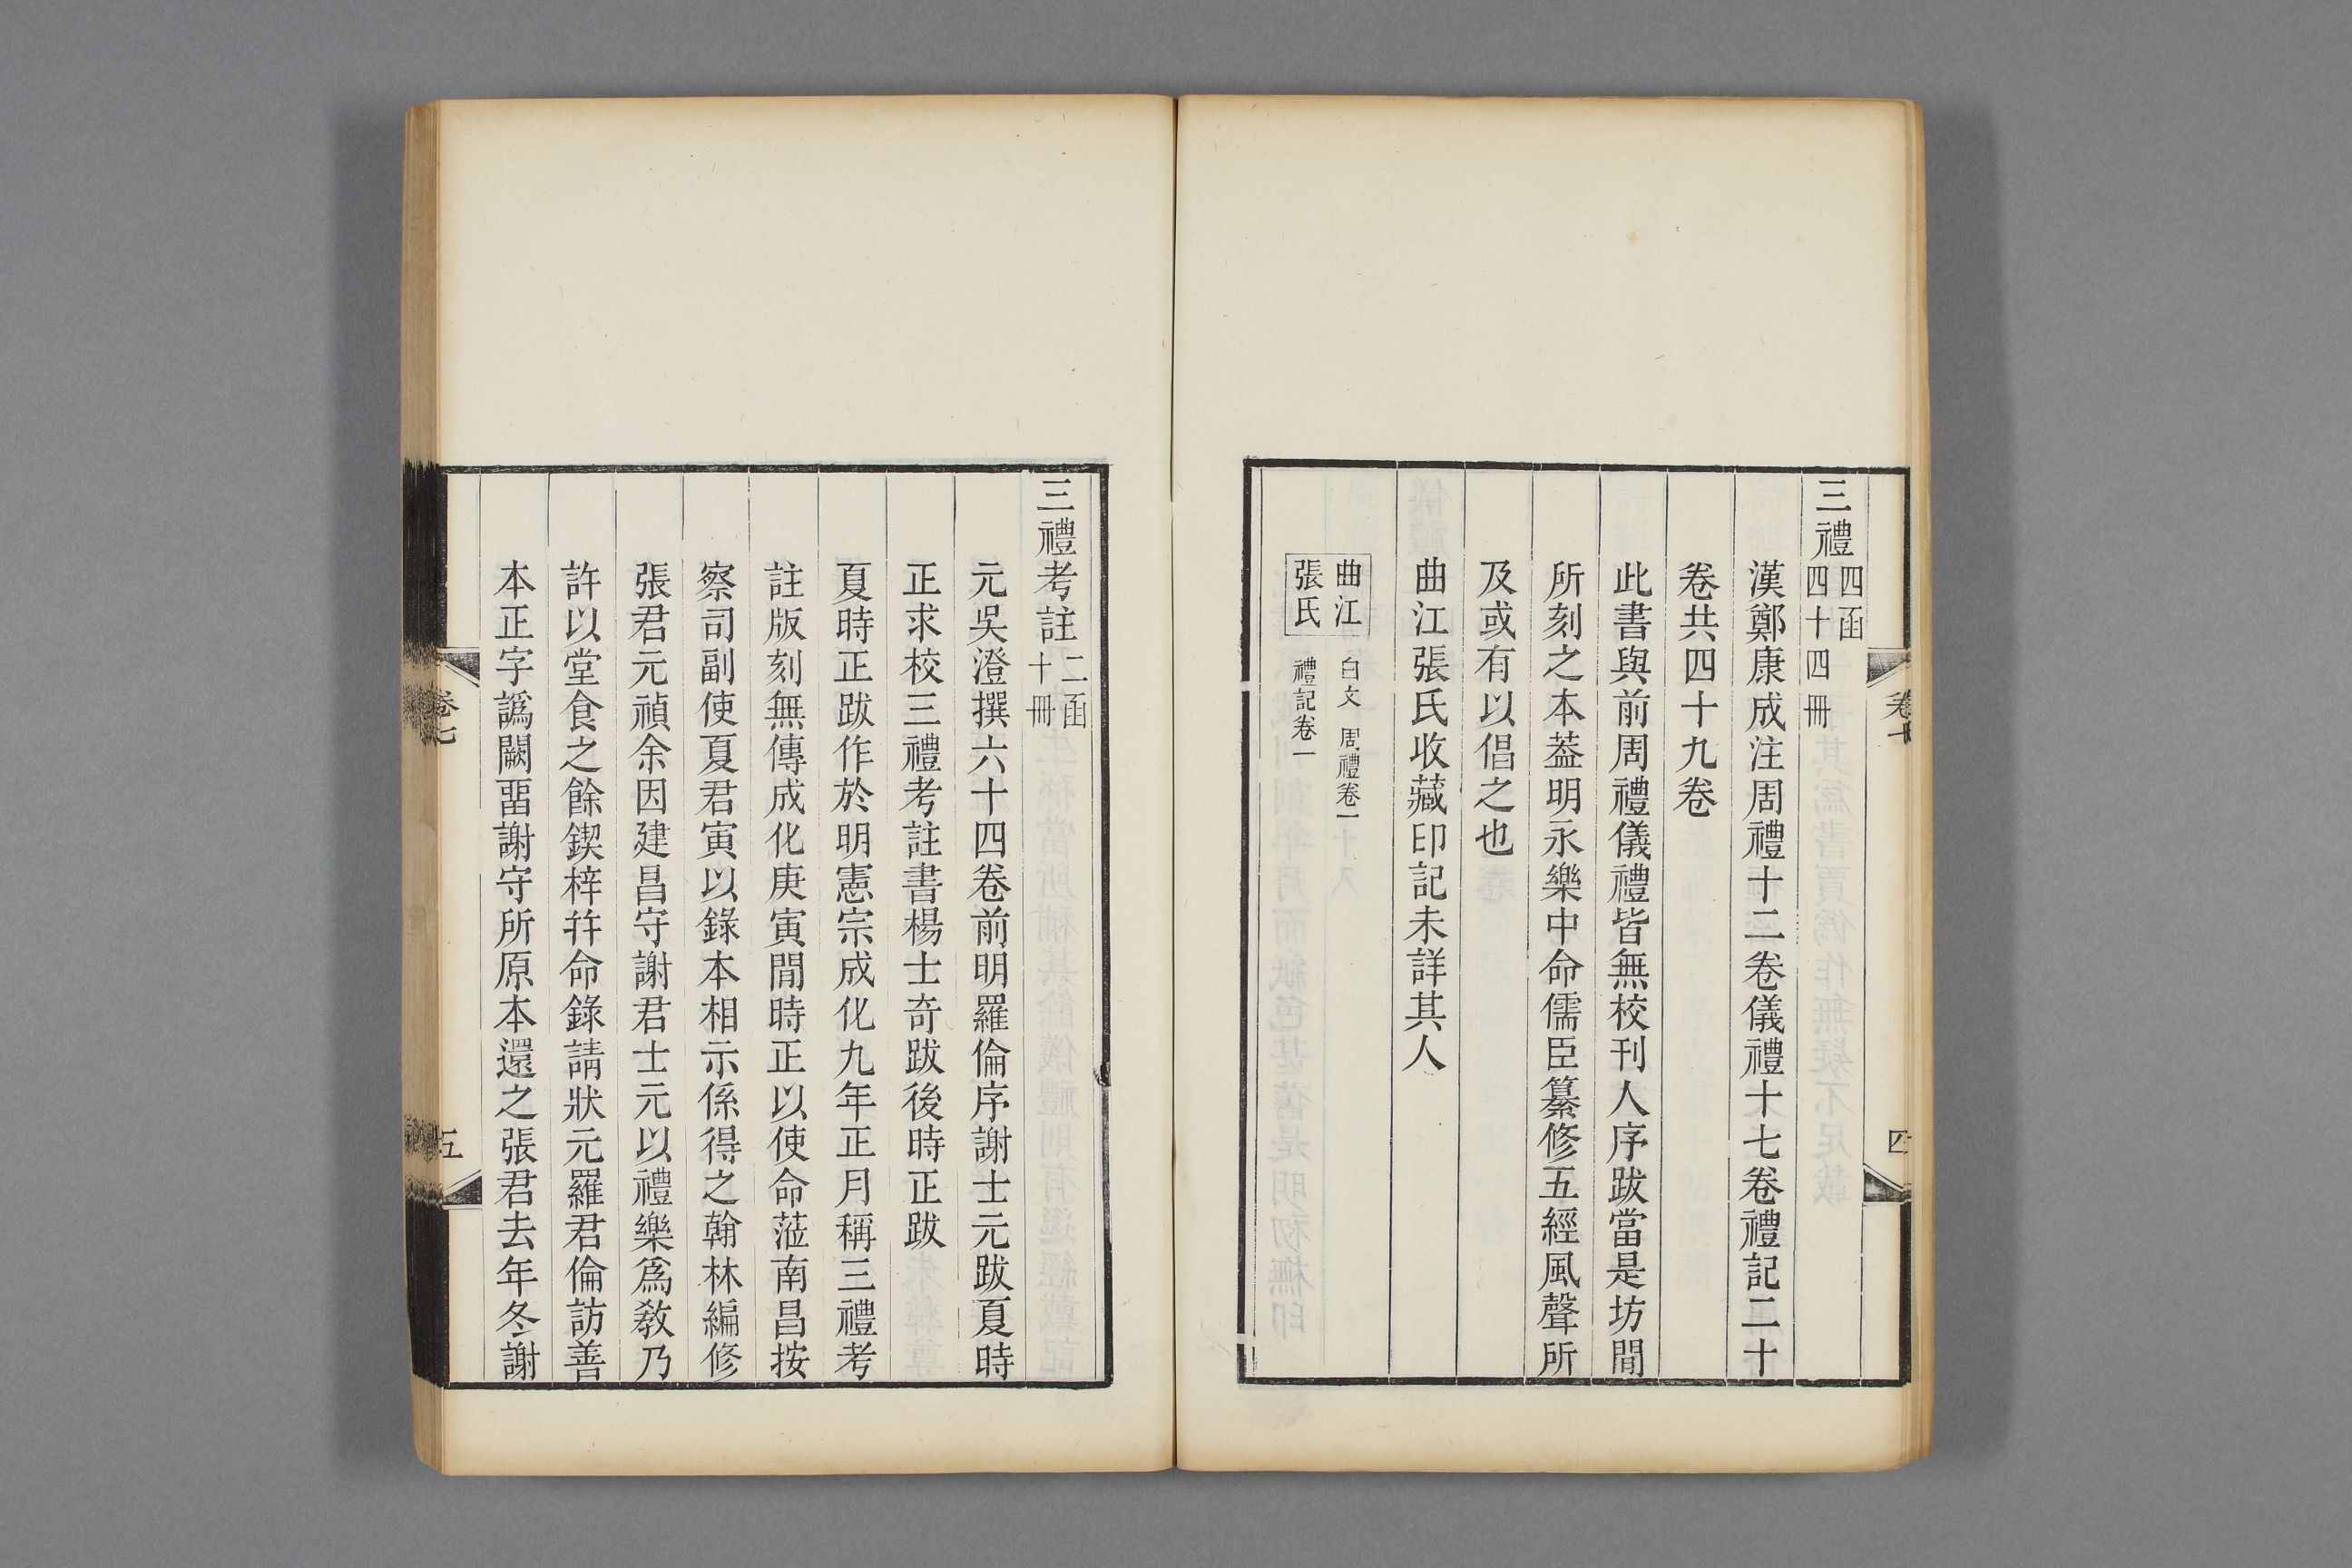 三禮四函四十四冊
漢鄭康成注周禮十二卷儀禮十七卷禮記二十
卷共四十九卷
此書與前周禮儀禮皆無校刊人序跋當是坊閒
所刻之本葢明永樂中命儒臣纂修五經風聲所
及或有以倡之也
曲江張氏收藏印記未詳其人
曲江 白文 周禮卷一
張氏 禮記卷一
卷七
四
三禮考註二函十冊
元吳澄撰六十四卷前明羅倫序謝士元跋夏時
正求校三禮考註書楊士奇跋後時正跋
夏時正跋作於明憲宗成化九年正月稱三禮考
註版刻無傳成化庚寅閒時正以使命蒞南昌按
察司副使夏君寅以錄本相示係得之翰林編修
張君元禎余因建昌守謝君士元以禮樂爲敎乃
許以堂食之餘鍥梓幷命錄請狀元羅君倫訪善
本正字譌闕畱謝守所原本還之張君去年冬謝
卷七
五